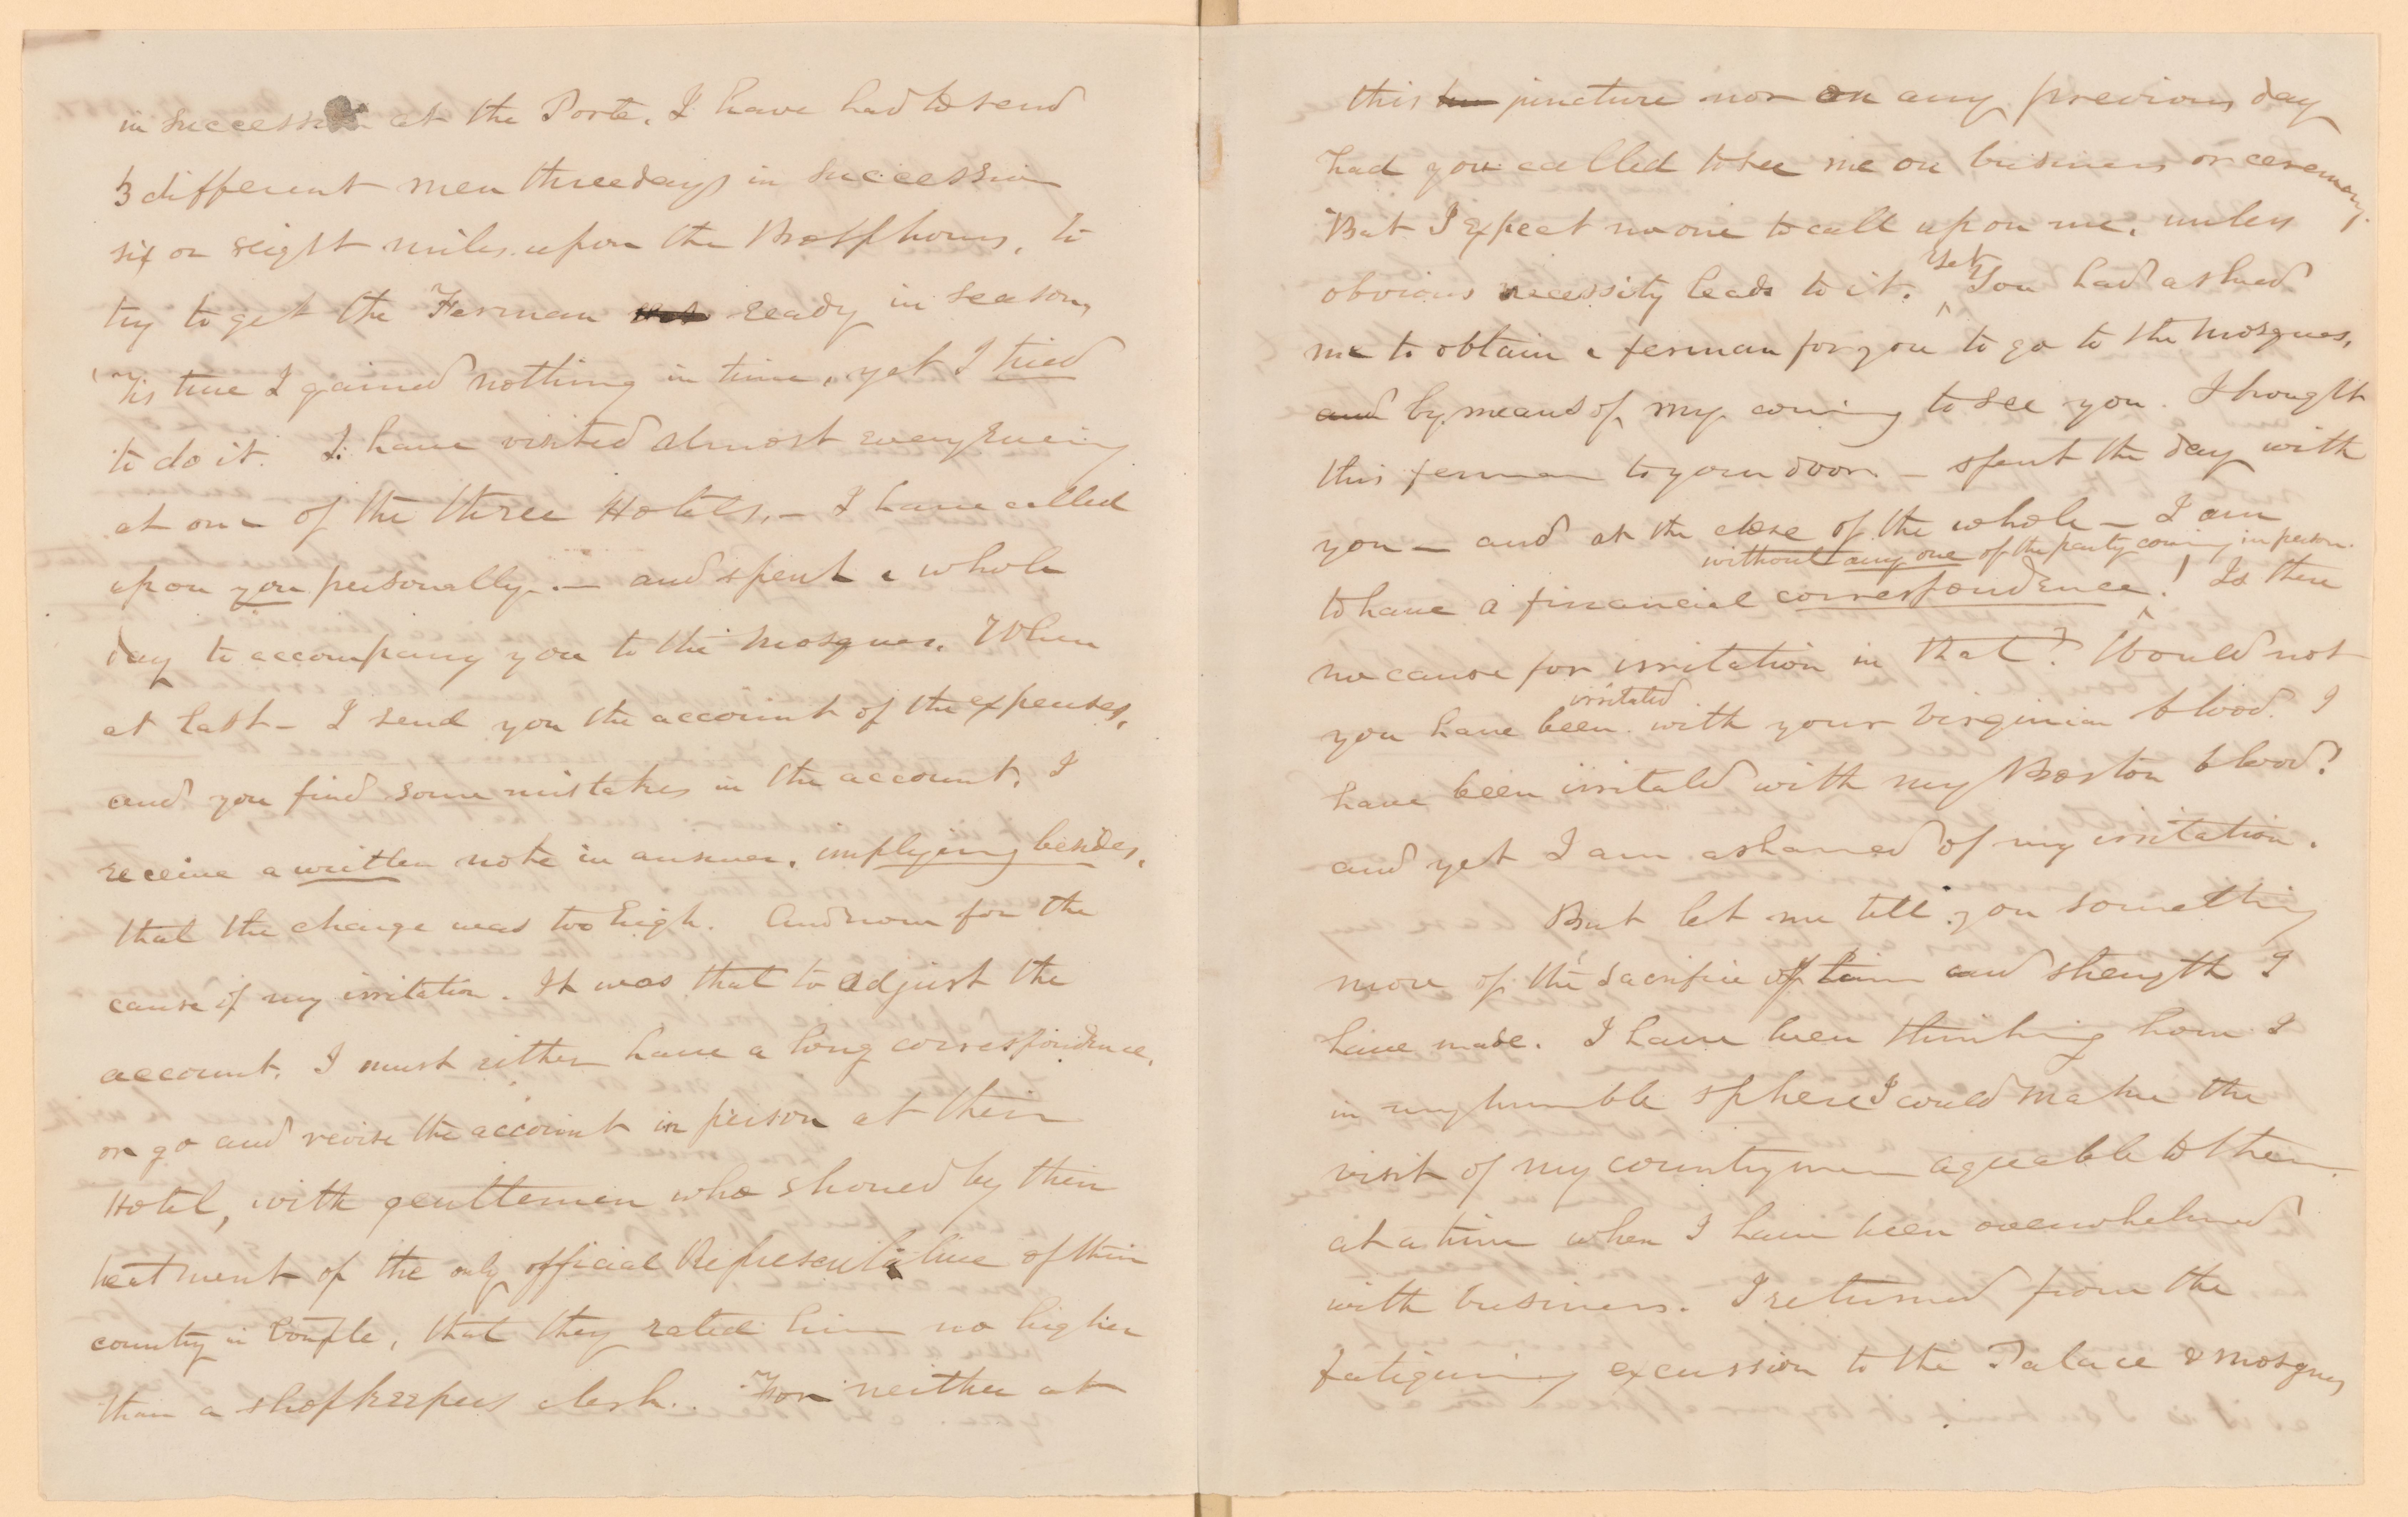 in succession at the Porte. I have had to send
3 different men three days in succession
six or eight miles upon the Bosphorus, to
try to get the Ferman ready in season,
'Tis true I gained nothing in time, yet I tried
to do it. I have visited almost every evening
at one of the three Hotels,— I have called
upon you personally.— and spent a whole
day to accompany you to the Mosques. When
at last— I send you the account of the expenses,
and you find some mistakes in the account, I
receive a written note in answer, implying besides,
that the charge was too high. And now for the
cause of my irritation. It was that to adjust the
account, I must either have a long correspondence,
or go and revise the account in person at their
Hotel, with gentlemen who showed by their
treatment of the only official Representative of their
country in Constple, that they rated him no higher
than a shopkeepers clerk.. For neither at
this juncture nor on any previous day
had you called to see me on business or ceremony.
But I expect no one to call upon me, unless
obvious necessity leads to it. Yet You had asked
me to obtain a ferman for you to go to the Mosques,
and by means of my coming to see you. I bought
this ferman to your door — spent the day with
you — and at the close of the whole — I am
without any one of the party coming in person.
to have a financial correspondence! Is there
no cause for irritation in that? Would not
irritated
you have been with your Virginian blood. I
have been irritated with my Boston blood!
and yet I am ashamed of my irritation.
But let me tell you something
more of the sacrifice of time and strength I
have made. I have been thinking how I
in my humble sphere I could make the
visit of my countrymen agreeable to them,
at a time when I have been overwhelmed
with business. I returned from the
fatiguing excursion to the Palace & Mosques